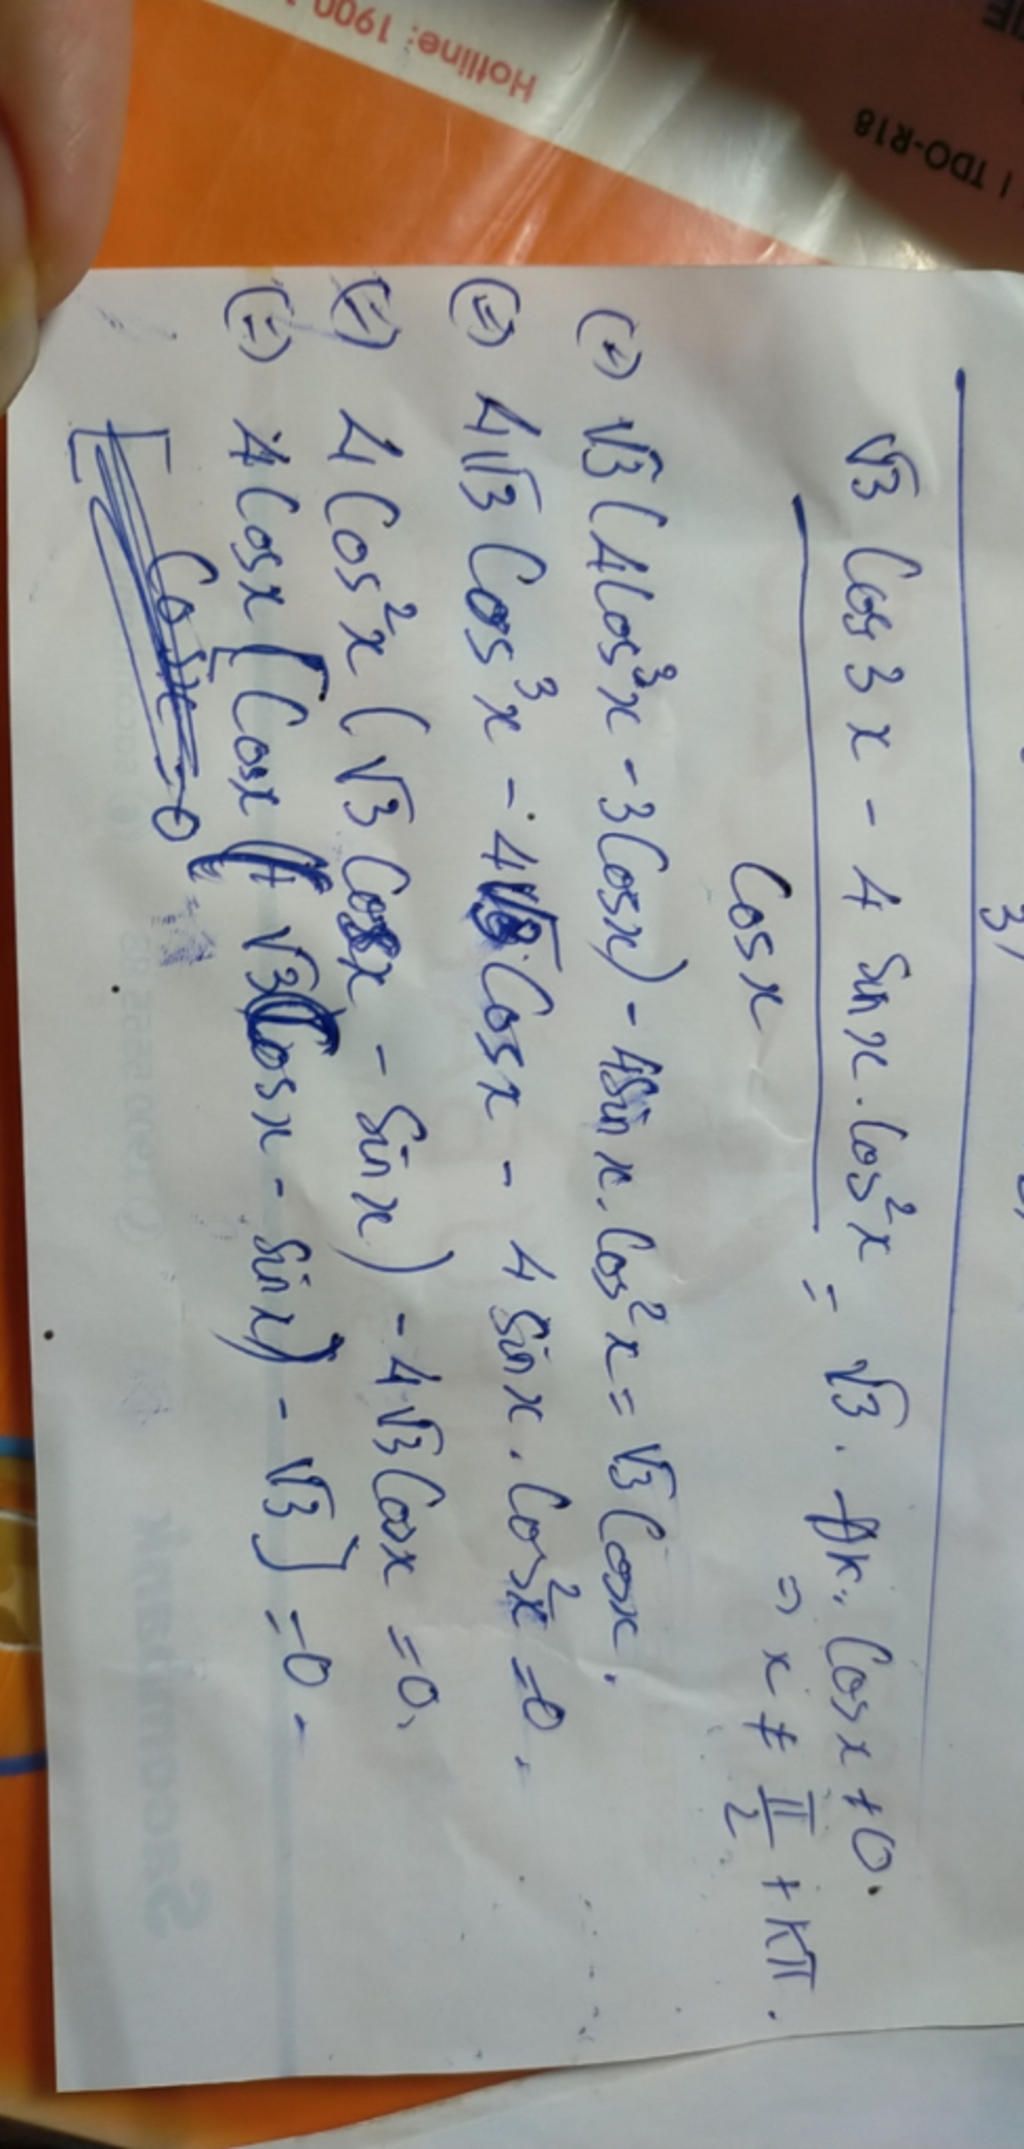 Hotline: 1900
| TDO-R18
3)
√3 Cos 3x - 4 Sinx.Cos²x = √3. Đk: Cosx ≠ 0.
Cosx
=> x ≠ π/2 + Kπ.
(=) √3(4Cos³x - 3Cosx) - 4Sinx.Cos²x = √3Cosx.
(=) 4√3 Cos³x - 4√3.Cosx - 4 Sinx.Cos²x = 0.
(=) 4Cos²x (√3 Cosx - Sinx) - 4√3Cosx = 0.
(=) 4Cosx [Cosx ( √3Cosx - Sinx) - √3] = 0.
Cosx = 0
Sacombank